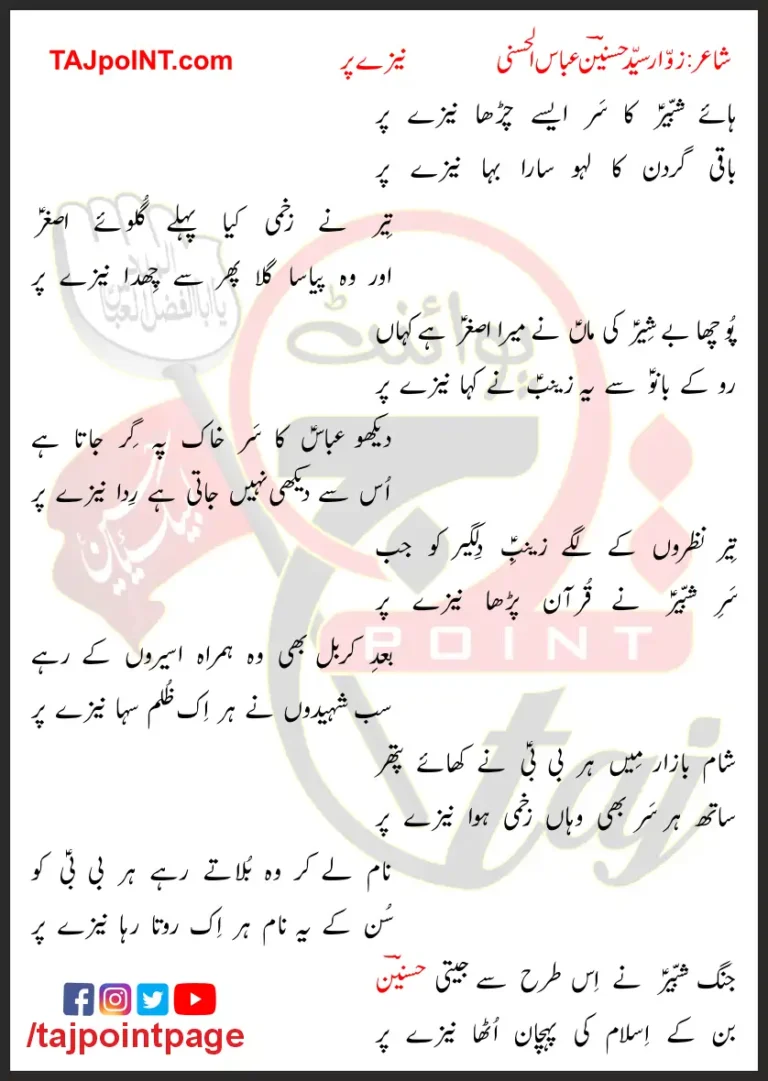 شاعر: زوّار سیّد حسنینؔ عباس الحسنی نیزے پر TAJpoINT.com
ہائے شبّیرؑ کا سَر ایسے چڑھا نیزے پر
باقی گردن کا لہو سارا بہا نیزے پر
تیر نے زخمی کیا پہلے گُلوئے اصغرؑ
اور وہ پیاسا گلا پھر سے چِھدا نیزے پر
پُوچھا بے شِیرؑ کی ماںؑ نے میرا اصغرؑ ہے کہاں
رو کے بانوؑ سے یہ زینبؑ نے کہا نیزے پر
دیکھو عباسؑ کا سَر خاک پہ گِر جاتا ہے
اُس سے دیکھی نہیں جاتی ہے رِدا نیزے پر
تیر نظروں کے لگے زینبِؑ دِلگیر کو جب
سَرِ شبّیرؑ نے قُرآن پڑھا نیزے پر
بعدِ کربل بھی وہ ہمراہ اسیروں کے رہے
سب شہیدوں نے ہر اِک ظُلم سہا نیزے پر
شام بازار مِیں ہر بی بیؑ نے کھائے پتھر
ساتھ ہر سَر بھی وہاں زخمی ہوا نیزے پر
نام لے کر وہ بُلاتے رہے ہر بی بیؑ کو
سُن کے یہ نام ہر اِک روتا رہا نیزے پر
جنگ شبّیرؑ نے اِس طرح سے جیتی حسنینؔ
بن کے اِسلام کی پہچان اُٹھا نیزے پر
/tajpointpage
پوائنٹ
تاج
POINT
taj
یا ابالفضل العباس
لبیک یا حسین